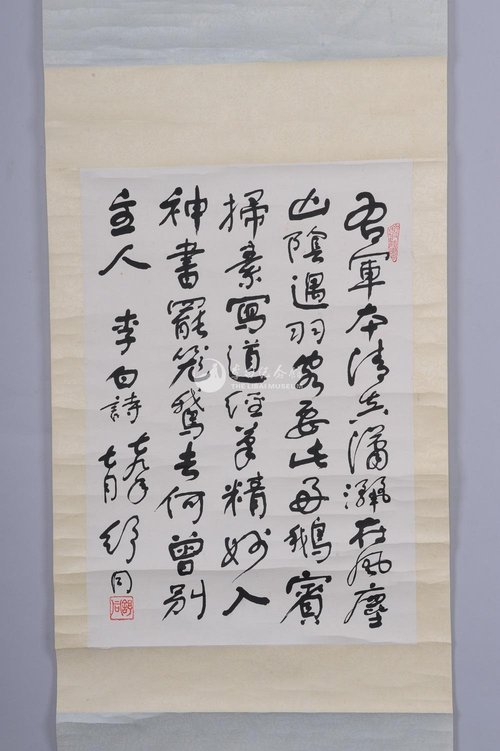 右軍本清真瀟灑在風塵
山陰遇羽客要此好鵝賓
掃素寫道經筆精妙入
神書罷籠鵝去何曾別
主人 李白詩 舒同
舒同
李白纪念馆
THE LIBAI MUSEUM